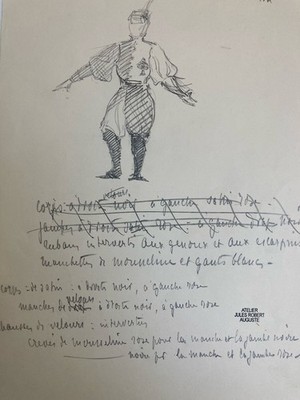 velours
corps à droite noir à gauche satin rose
jambes à droite satin rose à gauche noir
rubans intervertis aux genoux et aux escarpins
manchettes de mousseline et gants blancs -
corps : de satin : à droite noir, à gauche rose
velours
manches de à droite noir, à gauche rose
chausses de velours : interverties
crevés de mousseline rose pour la manche et la jambe noire
noire pr la manche et la jambe rose -
ATELIER
JULES ROBERT
AUGUSTE